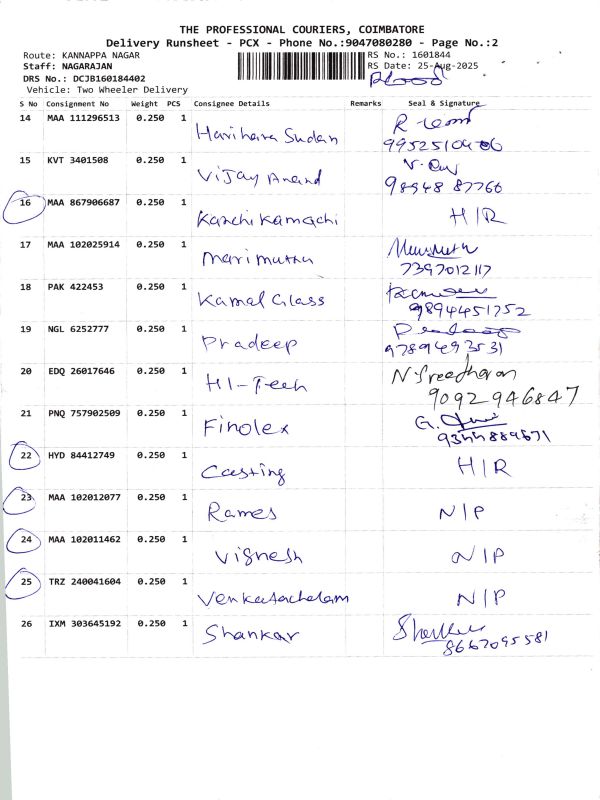 THE PROFESSIONAL COURIERS, COIMBATORE
Delivery Runsheet - PCX - Phone No.:9047080280 - Page No.:2
Route: KANNAPPA NAGAR
RS No.: 1601844
Staff: NAGARAJAN
RS Date: 25-Aug-2025
DRS No.: DCJB160184402
Vehicle: Two Wheeler Delivery
S No Consignment No Weight PCS Consignee Details Remarks Seal & Signature
14 MAA 111296513 0.250 1
Harihara Sudan
15 KVT 3401508 0.250 1
Vijay Anand
98948 87766
16 MAA 867906687 0.250 1
Kanchi Kamachi H/R
17 MAA 102025914 0.250 1
marimuthu
7397012117
18 PAK 422453 0.250 1
Kamal Glass
9894451752
19 NGL 6252777 0.250 1
Pradeep
9789493531
20 EDQ 26017646 0.250 1
HI-Tech N. Sreedharan
9092946847
21 PNQ 757902509 0.250 1
Finolex
9344889671
22 HYD 84412749 0.250 1
Casting H/R
23 MAA 102012077 0.250 1
Rames N/P
24 MAA 102011462 0.250 1
Vignesh N/P
25 TRZ 240041604 0.250 1
Venkatachalam N/P
26 IXM 303645192 0.250 1
Shankar
8667095581